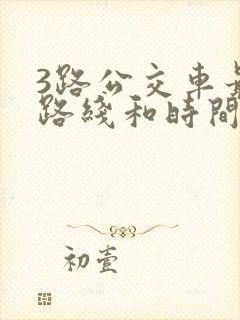 3路公交车
路綫和時間
初壹